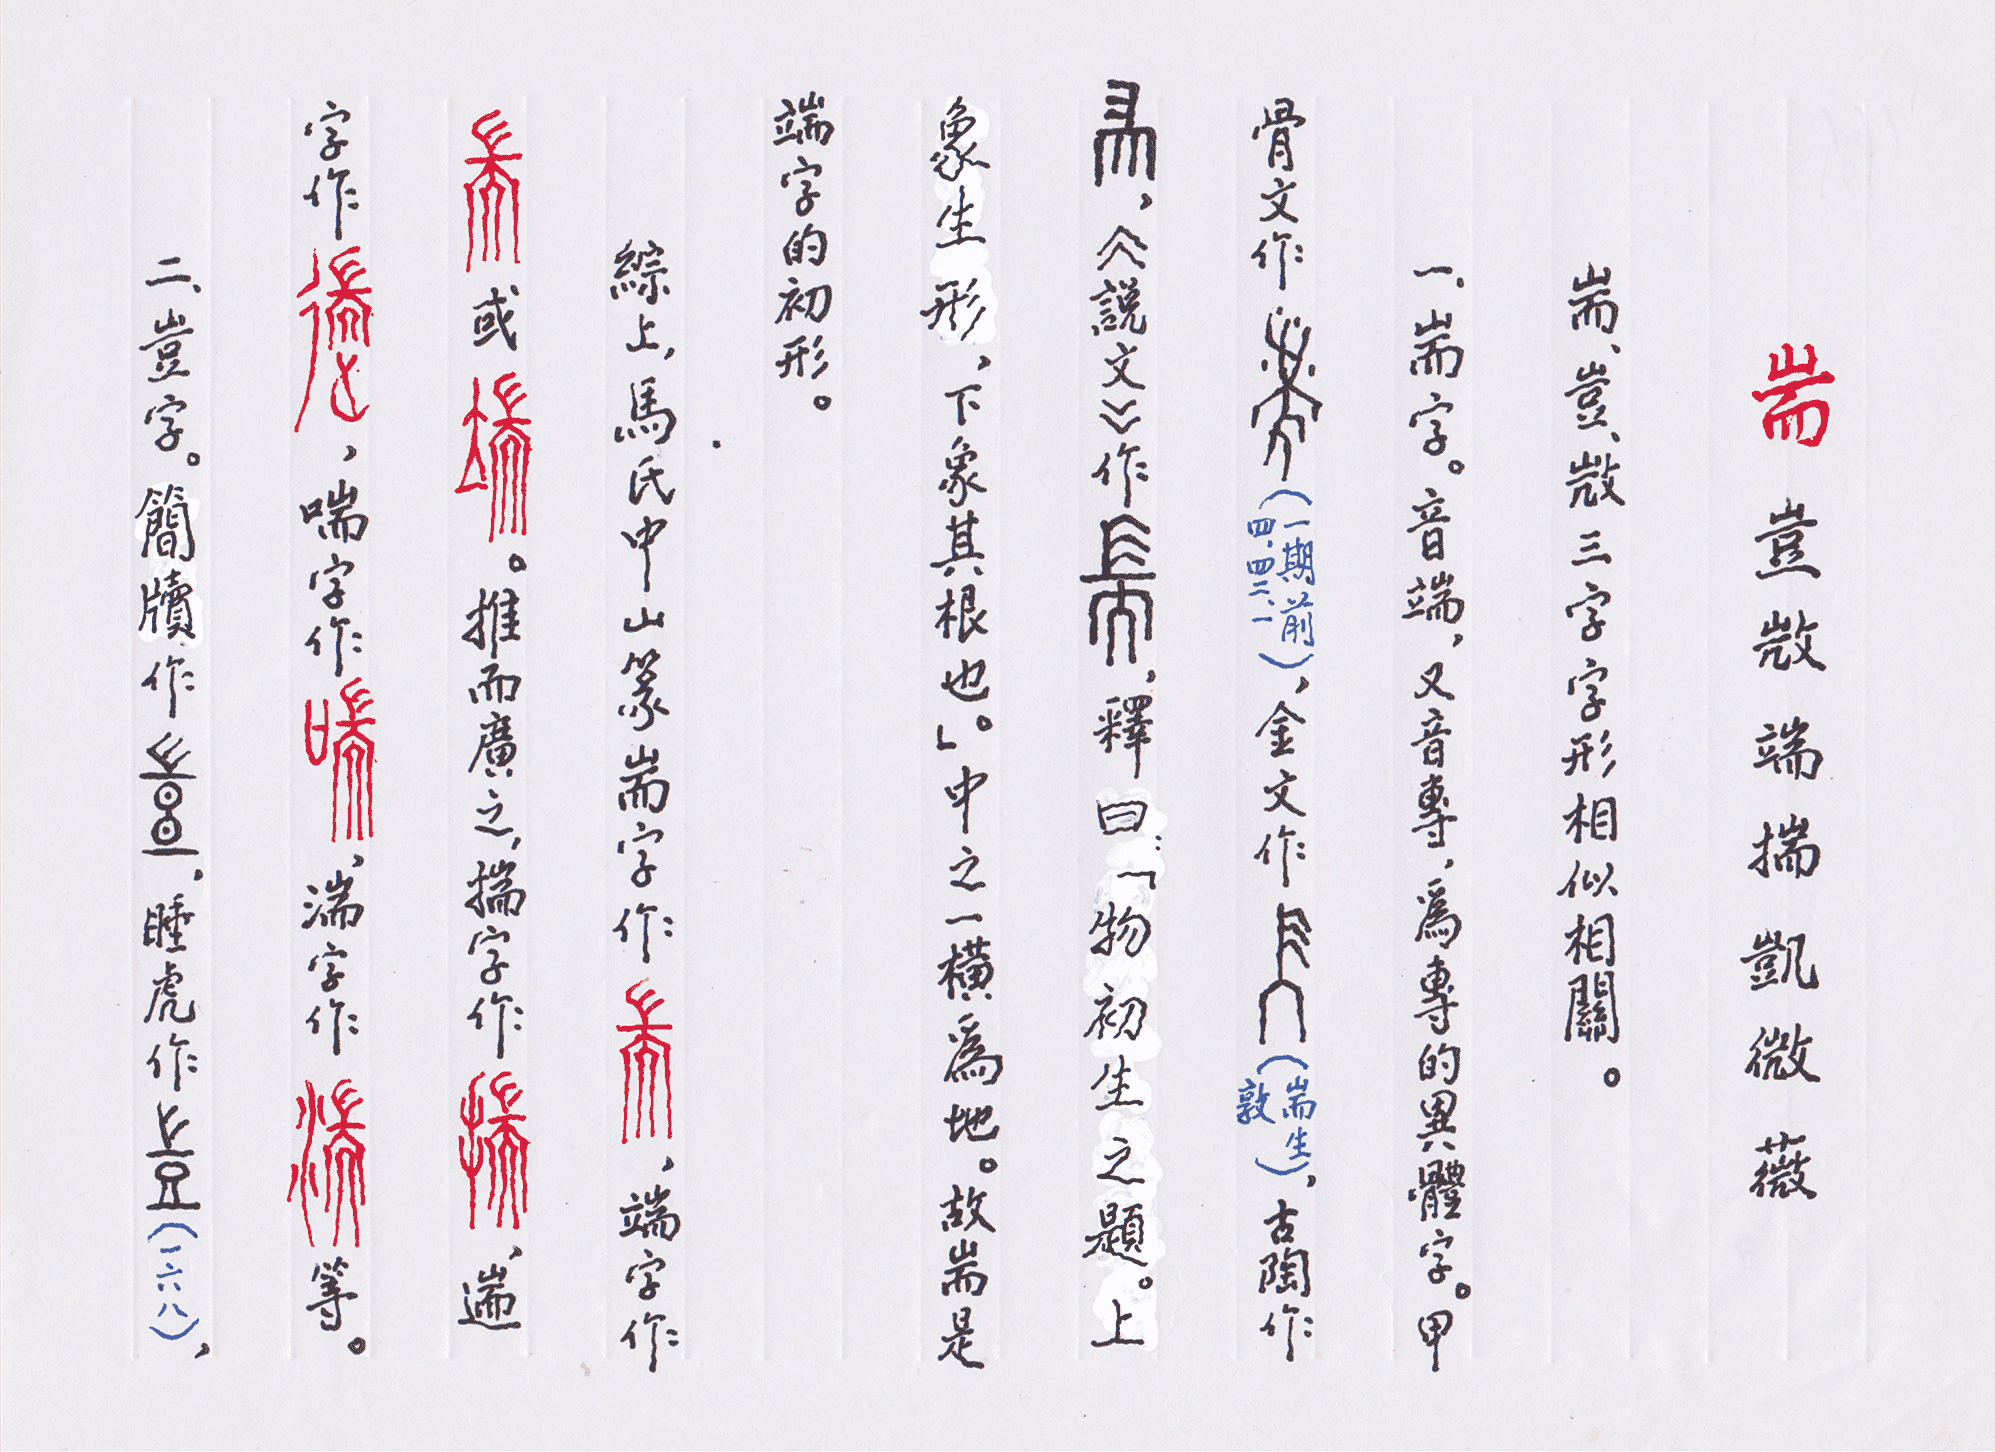 耑 豈 敳 端 揣 凱 微 薇
耑、豈、敳三字字形相似相關。
一、耑字。音端，又音專，為專的異體字。甲
骨文作（一期前四、四二、一），金文作（耑生敦），古陶作
，《說文》作，釋曰：「物初生之題。上
象生形，下象其根也。」中之一橫為地。故耑是
端字的初形。
綜上，馬氏中山篆耑字作，端字作
或。推而廣之，揣字作，遄
字作，喘字作，湍字作等。
二、豈字。簡牘作，睡虎作（一六八），